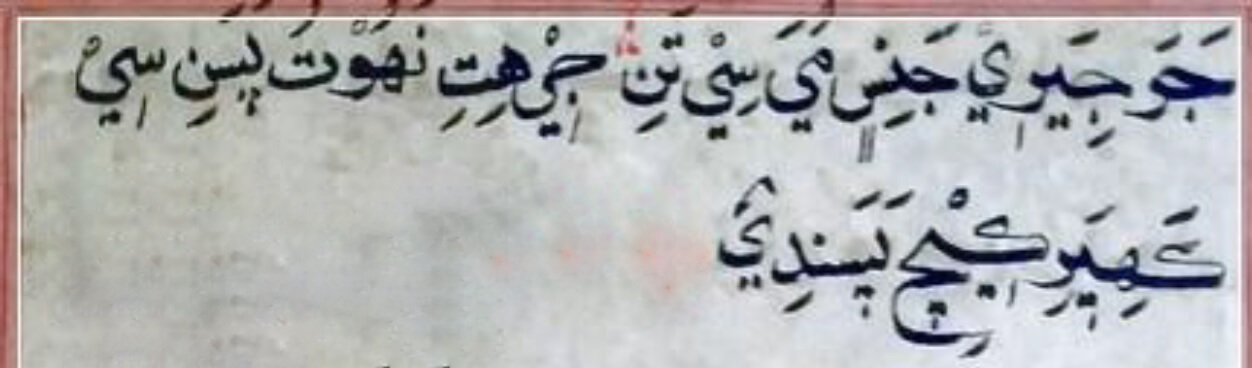 جَو جِيَرِيْ جَنِسِ مَيِ سِيْ تَنِ جِيْ هِتِ نَهُوْتَ پَسَنِ سيْ
ڪَهِپَرِ ڪيْچِ پَسَندِيْ